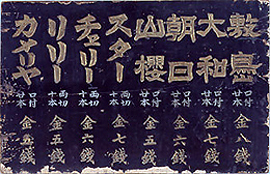 敷島 口付 廿本 金八銭
大和 口付 廿本 金七銭
朝日 口付 廿本 金六銭
山櫻 口付 廿本 金五銭
スター 両切 十本 金七銭
チェリー 両切 十本 金六銭
リリー 両切 十本 金五銭
カメリヤ 口付 廿本 金五銭